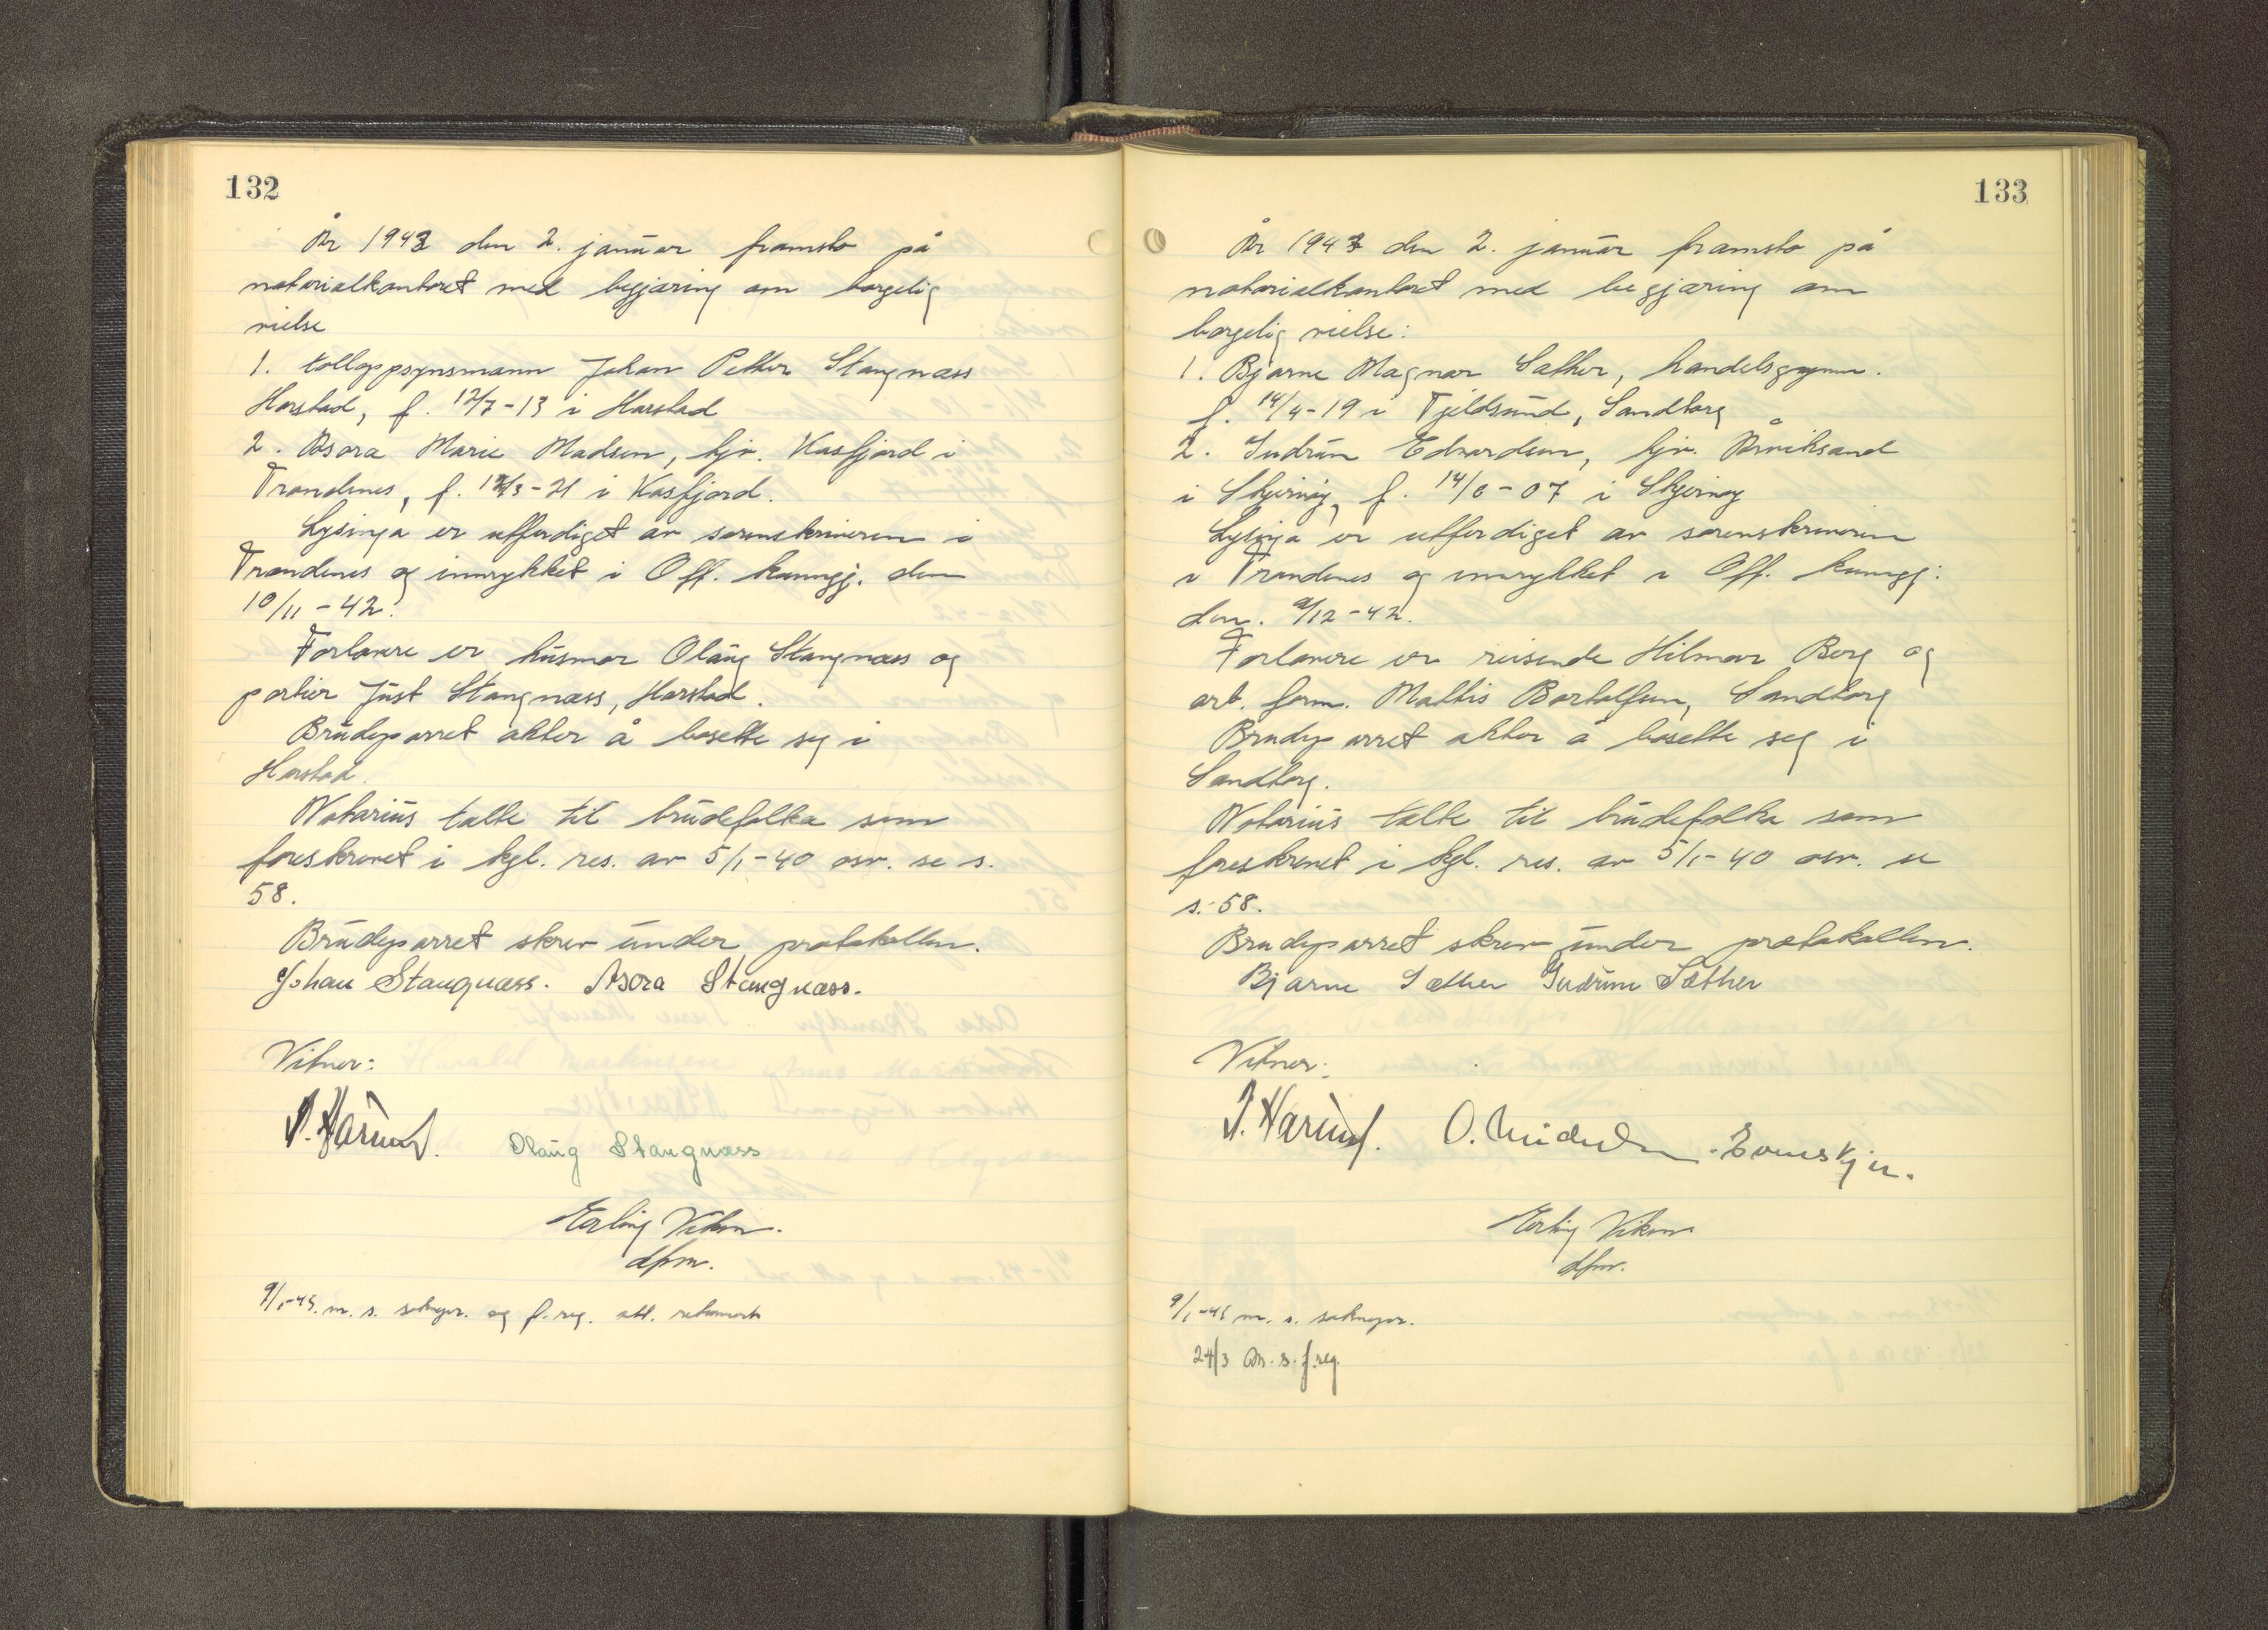 132
År 1943 den 2. januar framsto på
notarialkontoret med begjæring om borgelig
vielse
1. tolloppsynsmann Johan Petter Stangnæss
Harstad, f. 12/7-13 i Harstad
2. Asora Marie Madsen, hjv. Kasfjord i
Trondenes, f. 12/3-21 i Kasfjord.
Lysinga er utferdiget av sorenskriveren i
Trondenes og innrykket i Off. kunngj. den
10/11-42.
Forlovere er husmor Olaug Stangnæss og
portier Just Stangnæss, Harstad.
Brudeparret akter å bosette seg i
Harstad.
Notarius talte til brudefolka som
foreskrevet i kgl. res. av 5/1-40 osv. se s.
58.
Brudeparret skrev under protokollen.
Johan Stangnæss. Asora Stangnæss.
Vitner:
Olaug Stangnæss
Erling Vikon.
dfm.
9/1-43. m. s. soknepr. og f. reg. att. returnert
133
År 1943 den 2. januar framsto på
notarialkontoret med begjæring om
borgelig vielse:
1. Bjarne Magnar Sæther, handelsgymn.
f. 14/4-19 i Tjeldsund, Sandtorg
2. Gudrun Edvardsen, hjv. Årviksand
i Skjervøy, f. 14/6-07 i Skjervøy
Lysinga er utferdiget av sorenskriveren
i Trondenes og innrykket i Off. kunngj.
den. 9/12-42.
Forlovere er reisende Hilmar Berg og
arb. form. Mattis Bertolfsen, Sandtorg
Brudeparret akter å bosette seg i
Sandtorg.
Notarius talte til brudefolka som
foreskrevet i kgl. res. av 5/1-40 osv. se
s. 58.
Brudeparret skrev under protokollen.
Bjarne Sæther Gudrun Sæther
Vitner:
Evenskjer.
Erling Vikon
dfm.
9/1-43 m. s. soknepr.
24/3 M. s. f.reg.